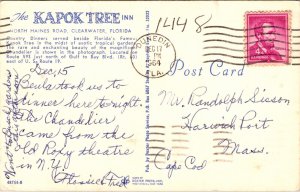 The KAPOK TREE INN
NORTH HAINES ROAD, CLEARWATER, FLORIDA
Country Dinners served beside Florida's Famous
Kapok Tree in the midst of exotic tropical gardens.
The rare and enchanting beauty of the magnificent
chandelier is shown in the photograph. Located on
Route 593 just north of Gulf to Bay Blvd. (Rt. 60)
east of U. S. Route 19.
Dec, 15
Beula took us to
dinner here tonight
The Chandelier
came from the
Old Roxy theatre
in N.Y.
Went to the
1414 S
DUNEDIN
DEC 17
PM
1964
FLA.
Post Card
Mr. Randolph
Harwich Port
Mass.
Cape Cod